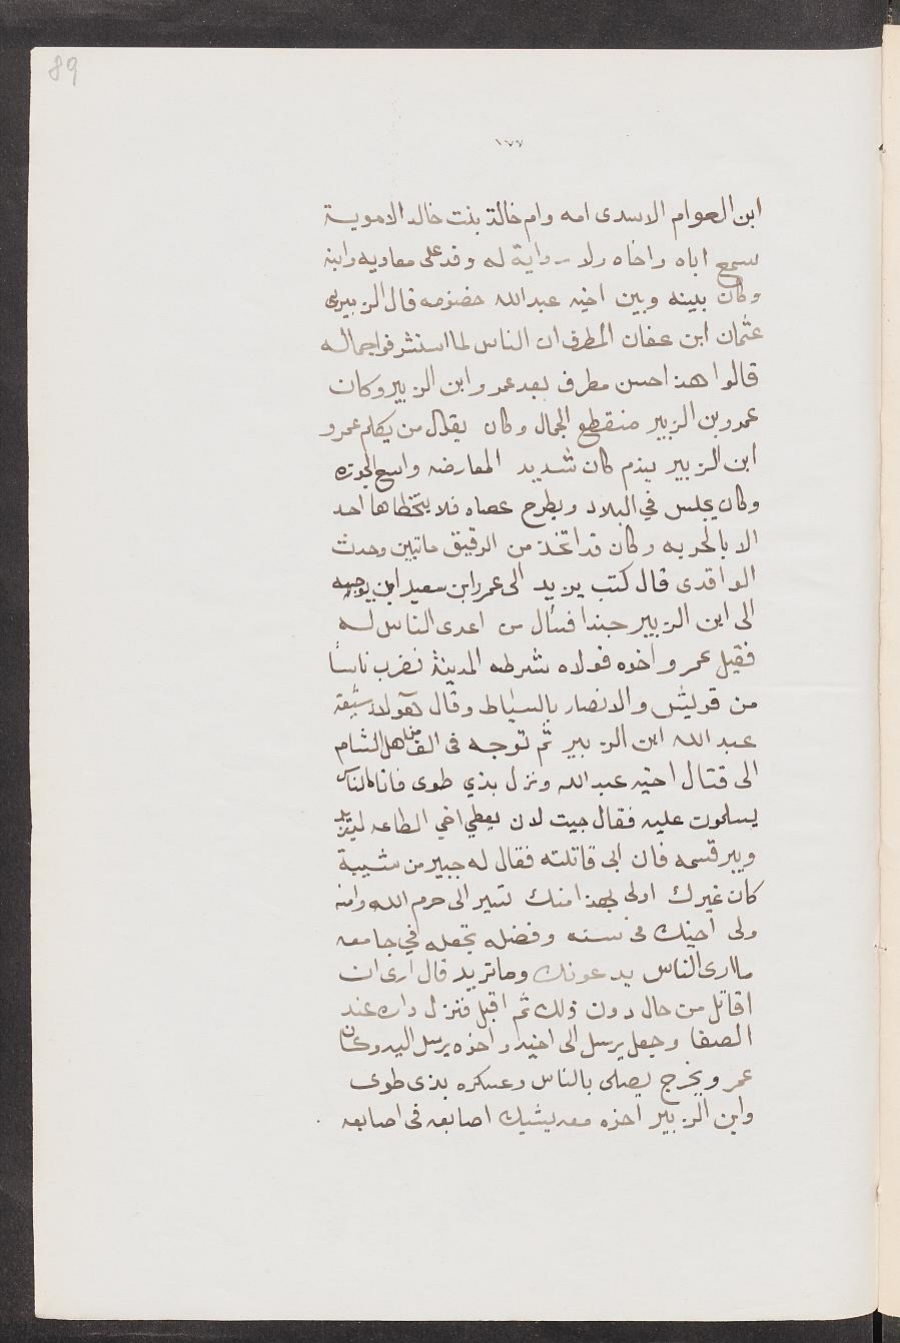 89
١٧٧
ابن العوام الاسدى امه وام خالة بنت خالد الاموية
سمع اباه واخاه ولا رواية له وفد على معاويه وابنه
وكان بينه وبين اخيه عبدالله خضومه قال الزبير بن
عثمان ابن عفان المطرف ان الناس لما استشرفوا جماله
قالوا هذا احسن مطرف بعد عمر وابن الزبير وكان
عمرو بن الزبير منقطع الجمال وكان يقال من يكلم عمرو
ابن الزبير يندم كان شديد المعارضه واسع الجوزه
وكان يجلس في البلاد ويطرح عصاه فلا يتخطاها احد
الا بالحربه وكان قد اتخذ من الرقيق ماتيين وحدث
الواقدى قال كتب يزيد الى عمر ابن سعيد ابن يوجهه
الى ابن الزبير جندا فسأل من اعدى الناس له
فقيل عمرو اخوه فولاه شرطه المدينة فضرب ناسا
من قريش والانصار بالسياط وقال هولاء شيعة
عبدالله ابن الزبير ثم توجه فى الف من اهل الشام
الى قتال اخيه عبدالله ونزل بذي طوى فاتاه الناس
يسلموت عليه فقال جيت لان يعطي اخي الطاعه ليزيد
ويبر قسمه فان ابى قاتلته فقال له جبير من شيبة
كان غيرك اولى بهذا منك تسير الى حرم الله وامنه
ولى اخيك فى سنه وفضله تجعله في جامعه
ما ارى الناس يدعونك وماتريد قال ارى ان
اقاتل من حال دون ذلك ثم اقبل فنزل داره عند
الصفا وجعل يرسل الى اخيه واخوه يرسل اليه وكان
عمر ويخرج يصلى بالناس وعسكره بذى طوى
وابن الزبير اخوه معه يشبك اصابعه فى اصابعه